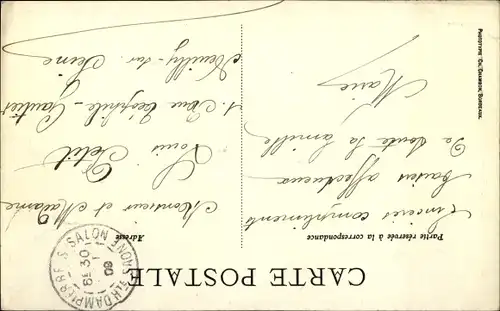 CARTE POSTALE
Partie réservée à la correspondance
Adresse
Sincères compliments
Baisers affectueux
De toute la famille
Marie
Monsieur et Madame
Louis Petit
1. Rue Théophile-Gautier
Neuilly-sur-Seine
DAMPIERRE S SALON
HTE MARNE
8E 30
09
PHOTOTYPIE CH. CHAMBON, BORDEAUX.